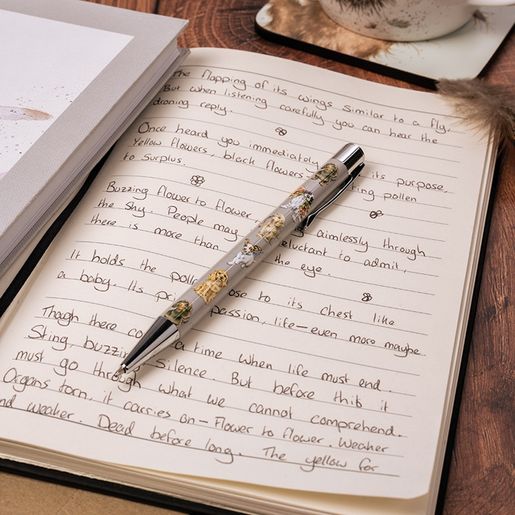 The flapping of its wings similar to a fly,
But when listening carefully you can hear the
droning reply.
Once heard you immediately its purpose,
Yellow flowers, black flowers pollen
to surplus.
Buzzing flower to flower, aimlessly through
the sky. People may reluctant to admit,
there is more than the eye.
It holds the to its chest like
a baby. Its passion, life-even more maybe.
Though there a time when life must end.
Sting, silence. But before this it
must go through what we cannot comprehend.
Organs torn, it carries on-Flower to flower. Weaker
and weaker. Dead before long. The yellow for